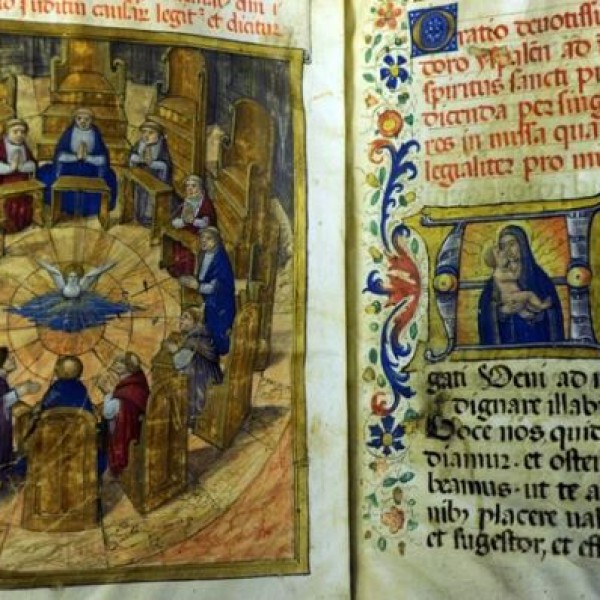 iuditiū causar̄ legitʳ et dicitur
Oratio deuotissi
doro yspalēn ad
spiritus sancti pr
dicenda per sing
res in missa qua
legialiter pro mi
gati Veni ad n
dignare illab
Doce nos quid
diamur · et osten
beamus · ut te a
nibꝫ placere val
et sugestor, et eff